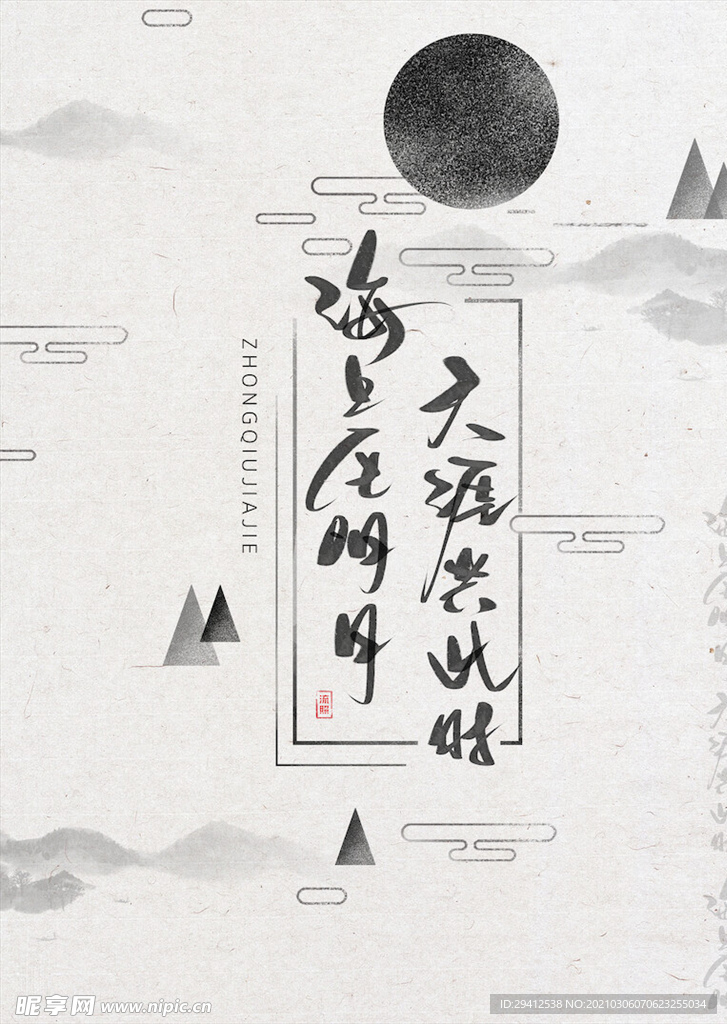 海上生明月
天涯共此时
ZHONGQIUJIAJIE
流照
昵享网 www.nipic.cn
ID:29412538 NO:20210306070623255034